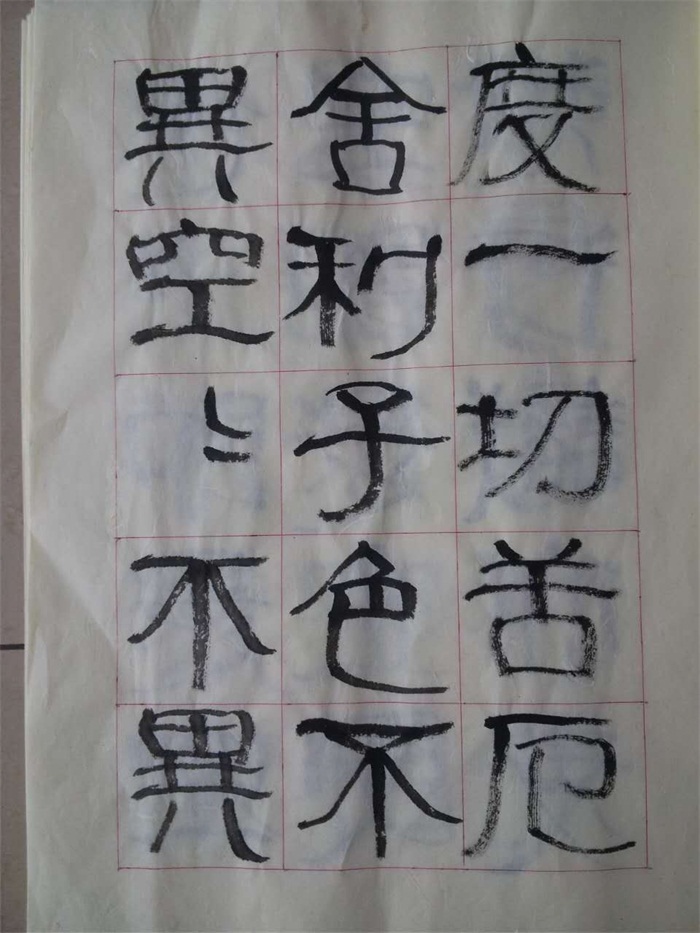 度一切苦厄
舍利子色不
異空〻不異